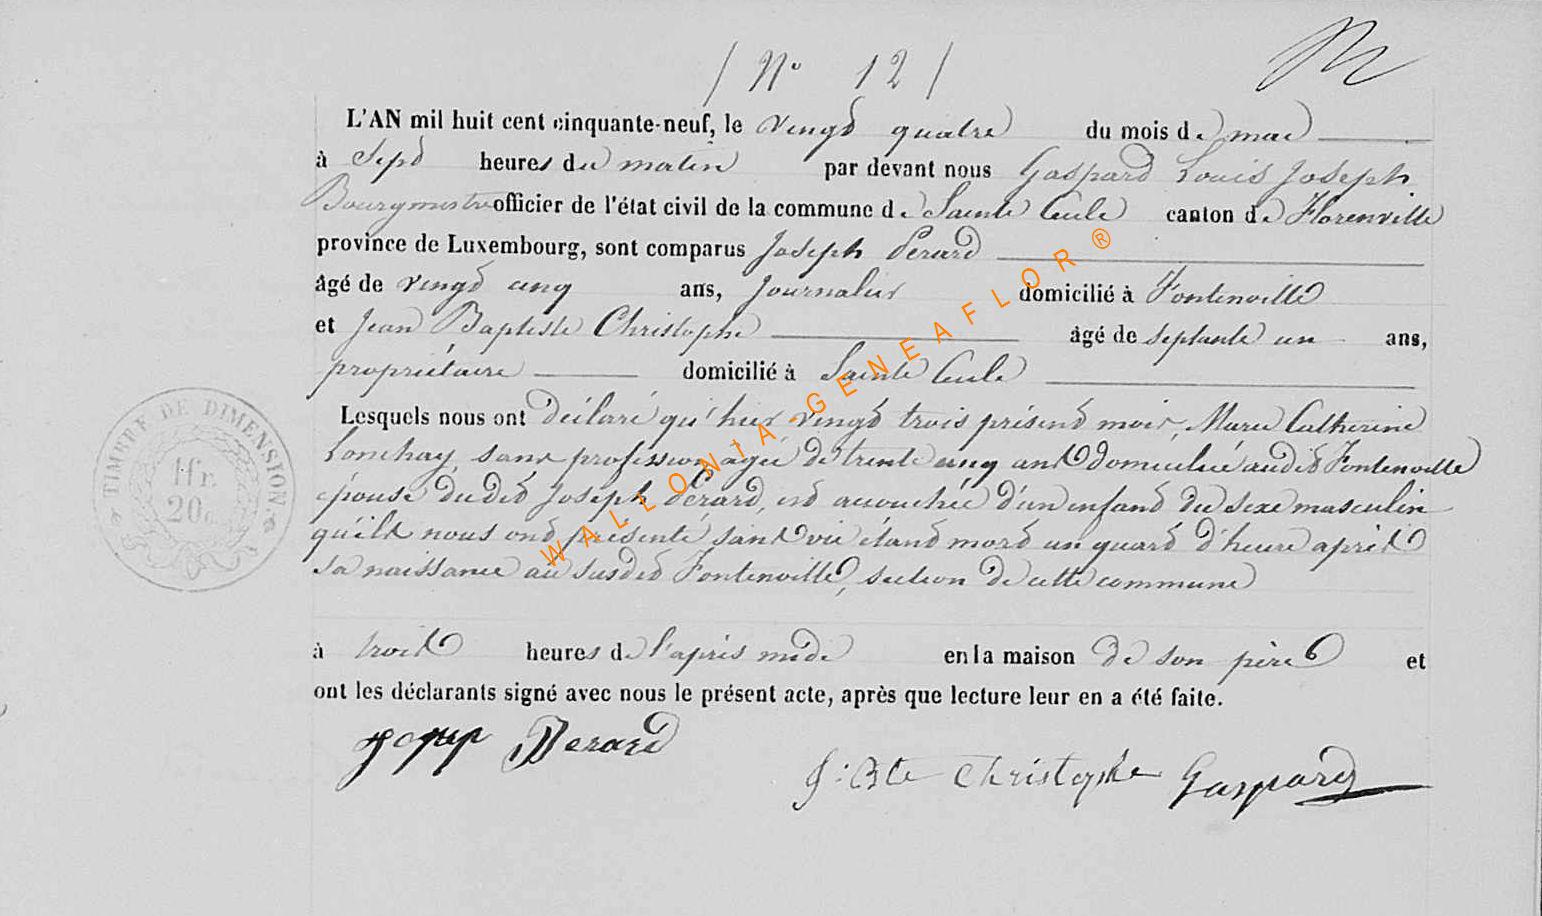 / N° 12 /
L'AN mil huit cent cinquante-neuf, le vingt quatre du mois de mai
à Sept heures du matin par devant nous Gaspard Louis Joseph
Bourgmestre officier de l'état civil de la commune de Sainte Cécile canton de Florenville
province de Luxembourg, sont comparus Joseph Perard
âgé de vingt cinq ans, Journalier domicilié à Fontenoille
et Jean Baptiste Christophe âgé de septante un ans,
propriétaire domicilié à Sainte Cécile
Lesquels nous ont déclaré qu'hier vingt trois présent mois, Marie Catherine
Lonchay, sans profession agée de trente cinq ans domiciliée audit Fontenoille
épouse dudit Joseph Pérard, est accouchée d'un enfant du sexe masculin
qu'ils nous ont présenté sans vie étant mort un quart d'heure après
sa naissance au susdit Fontenoille, section de cette commune
à trois heures de l'après midi en la maison de son père et
ont les déclarants signé avec nous le présent acte, après que lecture leur en a été faite.
Perard
J: Bte Christophe Gaspard
TIMBRE DE DIMENSION.
1 fr.
20c
WALLONIA-GENEAFLOR®